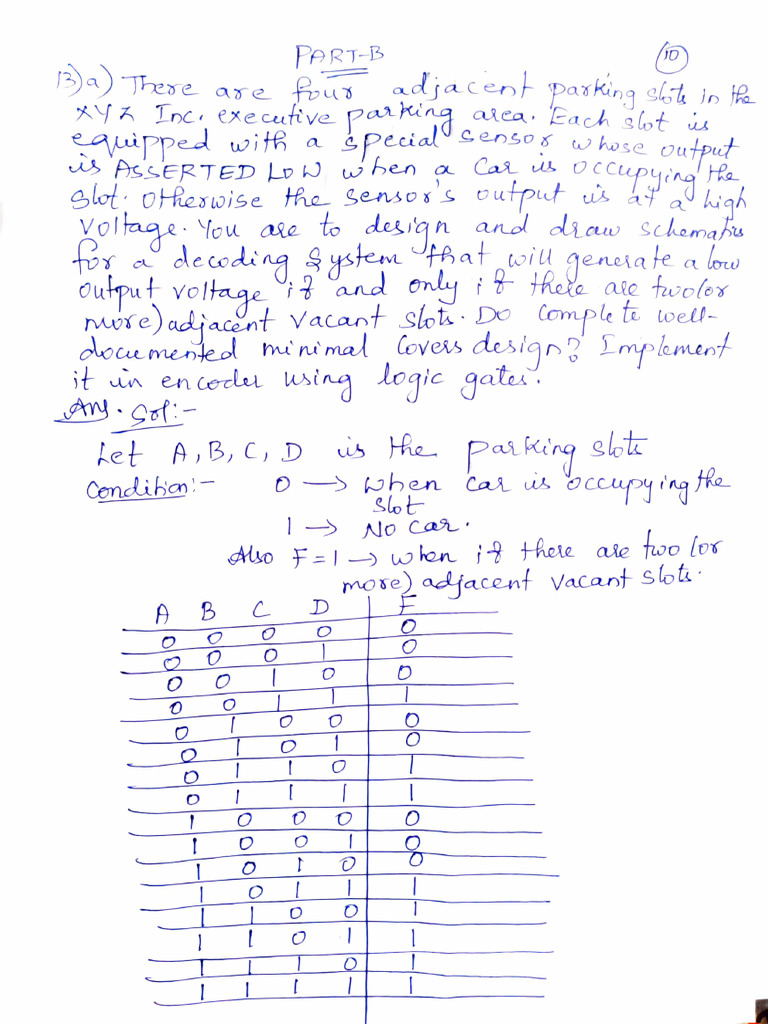 PART-B
10
13)a) There are four adjacent parking slots in the
XYZ Inc. executive parking area. Each slot is
equipped with a special sensor whose output
is ASSERTED LOW when a car is occupying the
slot. Otherwise the sensor's output is at a high
voltage. You are to design and draw schematics
for a decoding system that will generate a low
output voltage if and only if there are two(or
more) adjacent vacant slots. Do complete well-
documented minimal covers design? Implement
it in encoder using logic gates.
Ans. Sol:-
Let A, B, C, D is the parking slots
Condition:- 0 → when car is occupying the
slot
1 → No car.
Also F=1 → when if there are two (or
more) adjacent vacant slots.
A B C D F
0 0 0 0 0
0 0 0 1 0
0 0 1 0 0
0 0 1 1 1
0 1 0 0 0
0 1 0 1 0
0 1 1 0 1
0 1 1 1 1
1 0 0 0 0
1 0 0 1 0
1 0 1 0 0
1 0 1 1 1
1 1 0 0 1
1 1 0 1 1
1 1 1 0 1
1 1 1 1 1